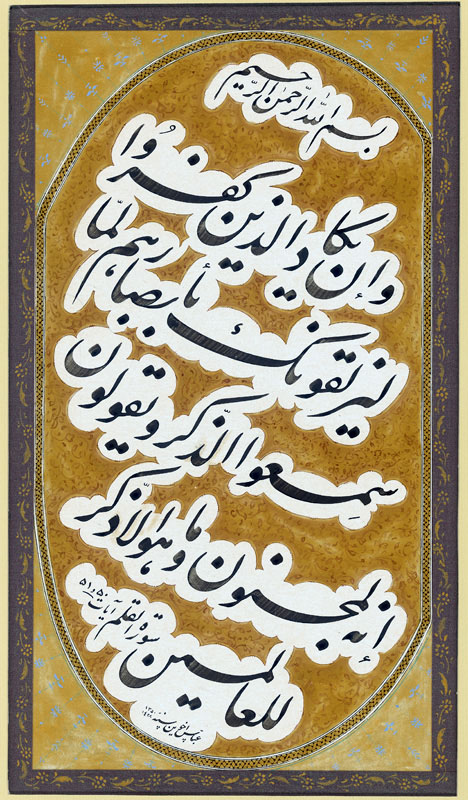 بسم الله الرحمن الرحیم
وإن یکاد الذین کفروا
لیزلقونک بأبصارهم لما
سمعوا الذکر ویقولون
إنه لمجنون وما هو إلا ذکر
للعالمین
سورة القلم آیات ۵۰ و ۵۱
عباس اخوین